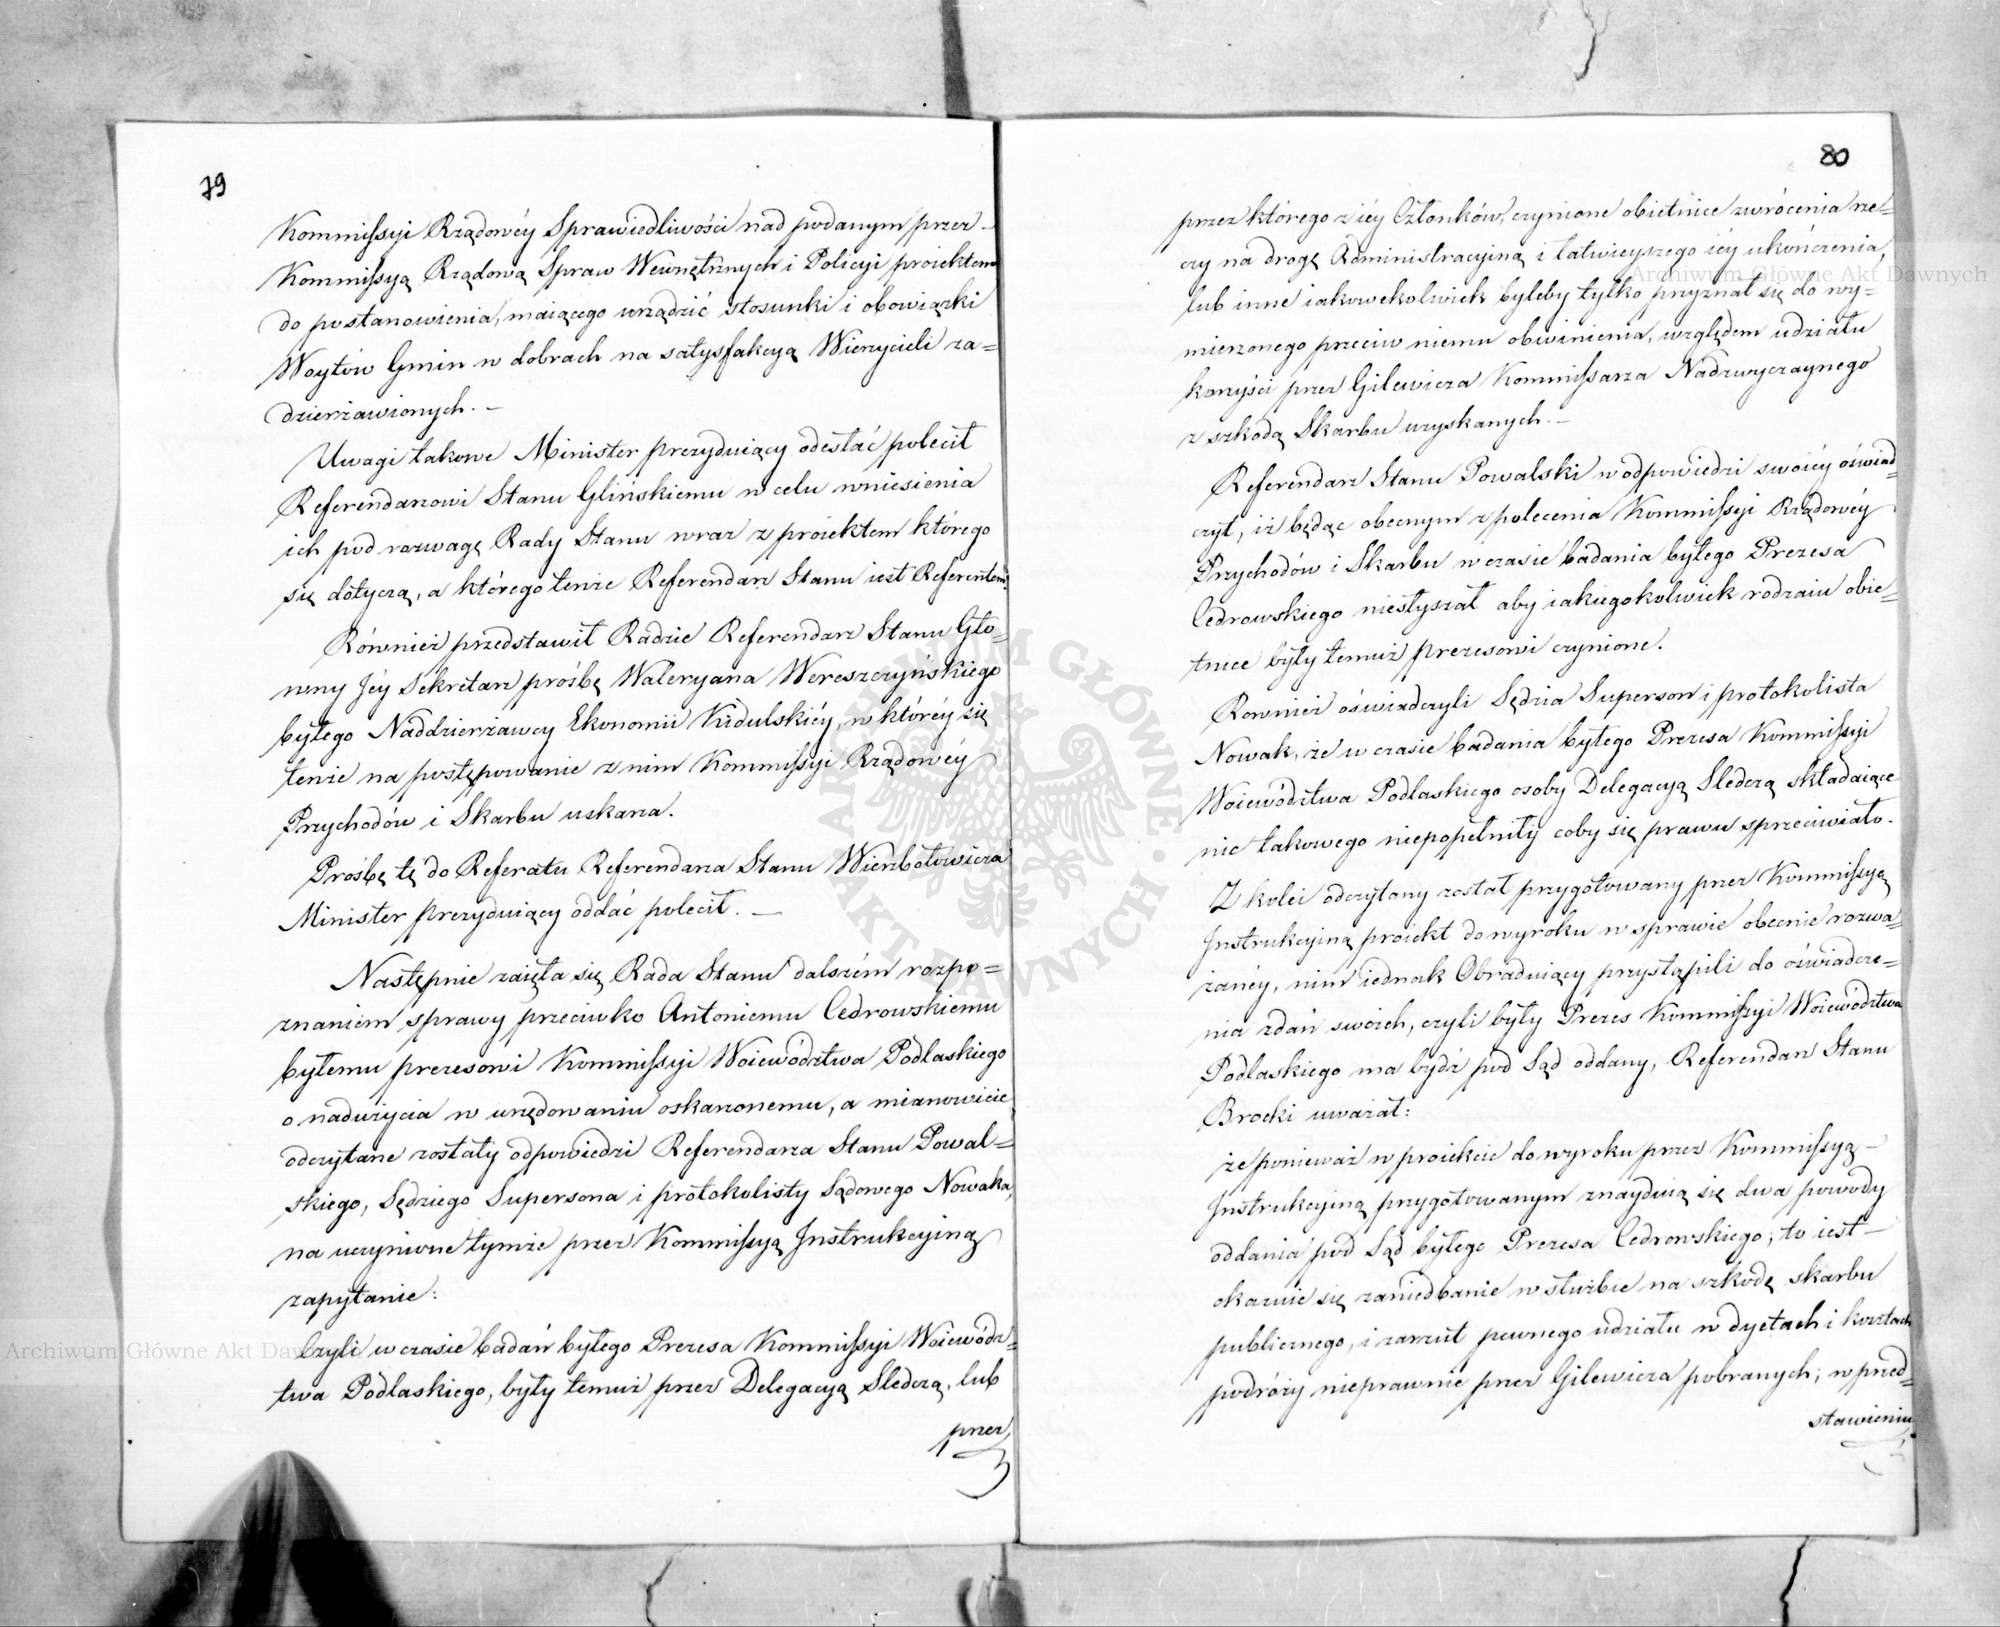 79
Kommissyi Rządowéy Sprawiedliwości nad podanym przez
Kommissyą Rządową Spraw Wewnętrznych i Policyi proiektem
do postanowienia, maiącego urządzić stosunki i obowiązki
Woytów Gmin w dobrach na satysfakcyą Wierzycieli za=
dzierżawionych. —
Uwagi takowe Minister prezyduiący odesłać polecił
Referendarzowi Stanu Glińskiemu w celu wniesienia
ich pod rozwagę Rady Stanu wraz z proiektem którego
się dotyczą, a którego tenże Referendarz Stanu iest Referentem.
Również przedstawił Radzie Referendarz Stanu Głó=
wny Jéy Sekretarz prośbę Waleryana Wereszczyńskiego
byłego Naddzierżawcy Ekonomii Kidulskiéy, w któréy się
tenże na postępowanie z nim Kommissyi Rządowéy
Przychodów i Skarbu uskarża.
Prośbę tę do Referatu Referendarza Stanu Wierzbołowicza
Minister prezyduiący oddać polecił. —
Następnie zaięła się Rada Stanu dalszém rozpo=
znaniem sprawy przeciwko Antoniemu Cedrowskiemu
byłemu prezesowi Kommissyi Woiewództwa Podlaskiego
o nadużycia w urzędowaniu oskarżonemu, a mianowicie
odczytane zostały odpowiedzi Referendarza Stanu Powal=
skiego, Sędziego Supersona i protokolisty Sądowego Nowaka,
na uczynione tymże przez Kommissyą Instrukcyiną
zapytanie:
Czyli w czasie badań byłego Prezesa Kommissyi Woiewódz=
twa Podlaskiego, były temuż przez Delegacyą Śledczą, lub
przez
80
przez którego z iéy Członków, czynione obietnice zwrócenia rze=
czy na drogę Administracyiną i łatwieyszego iéy ukończenia,
lub inne iakowekolwiek byleby tylko przyznał się do wy=
mierzonego przeciw niemu obwinienia, względem udziału
korzyści przez Gilewicza Kommissarza Nadzwyczaynego
z szkodą Skarbu uzyskanych. —
Referendarz Stanu Powalski w odpowiedzi swoiéy oświad=
czył, iż będąc obecnym z polecenia Kommissyi Rządowéy
Przychodów i Skarbu w czasie badania byłego Prezesa
Cedrowskiego niesłyszał aby iakiegokolwiek rodzaiu obie=
tnice były temuż prezesowi czynione.
Rownież oświadczyli Sędzia Superson i protokolista
Nowak, że w czasie badania byłego Prezesa Kommissyi
Woiewództwa Podlaskiego osoby Delegacyą Sledczą składaiące
nic takowego niepopełniły coby się prawu sprzeciwiało.
Z kolei odczytany został przygotowany przez Kommissyą
Instrukcyiną proiekt do wyroku w sprawie obecnie rozwa=
żanéy, nim iednak Obraduiący przystąpili do oświadcze=
nia zdań swoich, czyli były Prezes Kommissyi Woiewództwa
Podlaskiego ma bydź pod Sąd oddany, Referendarz Stanu
Brocki uważał:
że ponieważ w proiekcie do wyroku przez Kommissyą —
Instrukcyiną przygotowanym znayduią się dwa powody
oddania pod Sąd byłego Prezesa Cedrowskiego; to iest —
okazuie się zaniedbanie w służbie na szkodę skarbu
publicznego, i zarzut pewnego udziału w dyetach i kosztach
podróży nieprawnie przez Gilewicza pobranych; w przed=
stawieniu
ARCHIWUM GŁÓWNE · AKT DAWNYCH ·
Archiwum Główne Akt Dawnych
Archiwum Główne Akt Dawnych